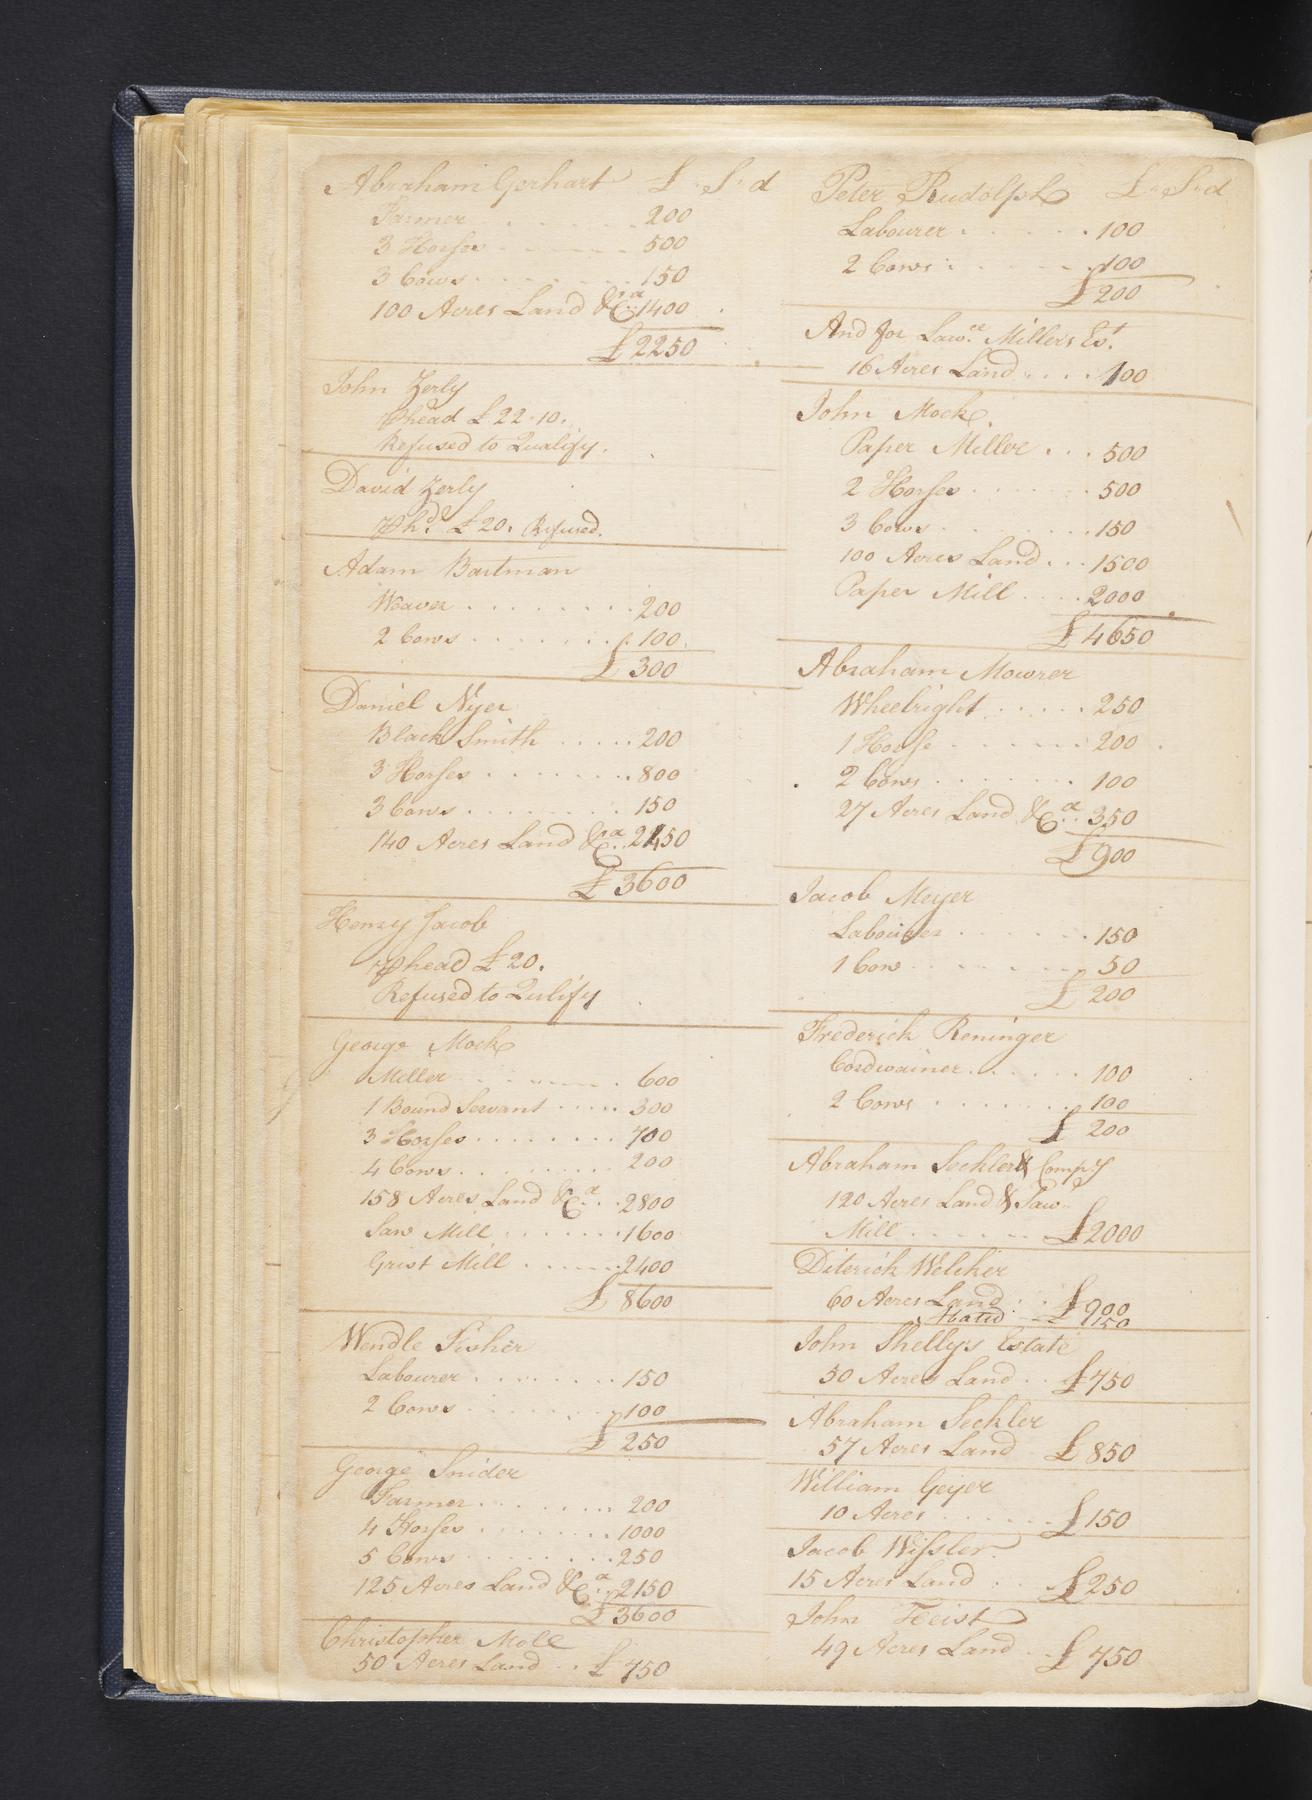 Abraham Gerhart £ " S " d
Farmer . . . . . . 200
3 Horses . . . . . . 500
3 Cows . . . . . . 150
100 Acres Land &Ca 1400
£ 2250
John Zerly
⅌ head £ 22-10.
Refused to Qualify.
David Zerly
⅌ hd. £ 20. Refused.
Adam Bartman
Weaver . . . . . . . . 200
2 Cows . . . . . . . . 100
£ 300
Daniel Nyer
Black Smith . . . . . 200
3 Horses . . . . . . . . 800
3 Cows . . . . . . . . 150
140 Acres Land &Ca 2450
£ 3600
Henry Jacob
⅌ head £ 20.
Refused to Qulify
George Mock
Miller . . . . . . . . 600
1 Bound Servant . . . . . 300
3 Horses . . . . . . . . 700
4 Cows . . . . . . . . 200
158 Acres Land &Ca . . 2800
Saw Mill . . . . . . . 1600
Grist Mill . . . . . . 2400
£ 8600
Wendle Fisher
Labourer . . . . . . . . 150
2 Cows . . . . . . . . 100
£ 250
George Snider
Farmer . . . . . . . . 200
4 Horses . . . . . . . . 1000
5 Cows . . . . . . . . 250
125 Acres Land &Ca . . 2150
£ 3600
Christopher Moll
50 Acres Land . . £ 750
Peter Rudolph £ " S " d
Labourer . . . . . . 100
2 Cows . . . . . . 100
£ 200
And for Lawce. Millers Est.
16 Acres Land . . . . 100
John Mock.
Paper Miller . . . 500
2 Horses . . . . . . . 500
3 Cows . . . . . . . . 150
100 Acres Land . . . 1500
Paper Mill . . . . 2000
£ 4650
Abraham Mowrer
Wheelright . . . . . 250
1 Horse . . . . . . . 200
2 Cows . . . . . . . 100
27 Acres Land &Ca . . 350
£ 900
Jacob Meyer
Labourer . . . . . . . 150
1 Cow . . . . . . . 50
£ 200
Frederick Reninger
Cordwainer . . . . . . 100
2 Cows . . . . . . . . 100
£ 200
Abraham Seckler & Compy
120 Acres Land & Saw
Mill . . . . . . . £ 2000
Diterick Welcker
60 Acres Land . . £ 900
150
John Shellys Estate
50 Acres Land . . £ 750
Abraham Seckler
57 Acres Land £ 850
William Geyer
10 Acres . . . . . . . £ 150
Jacob Wissler
15 Acres Land . . £ 250
John Feist
49 Acres Land . . £ 750